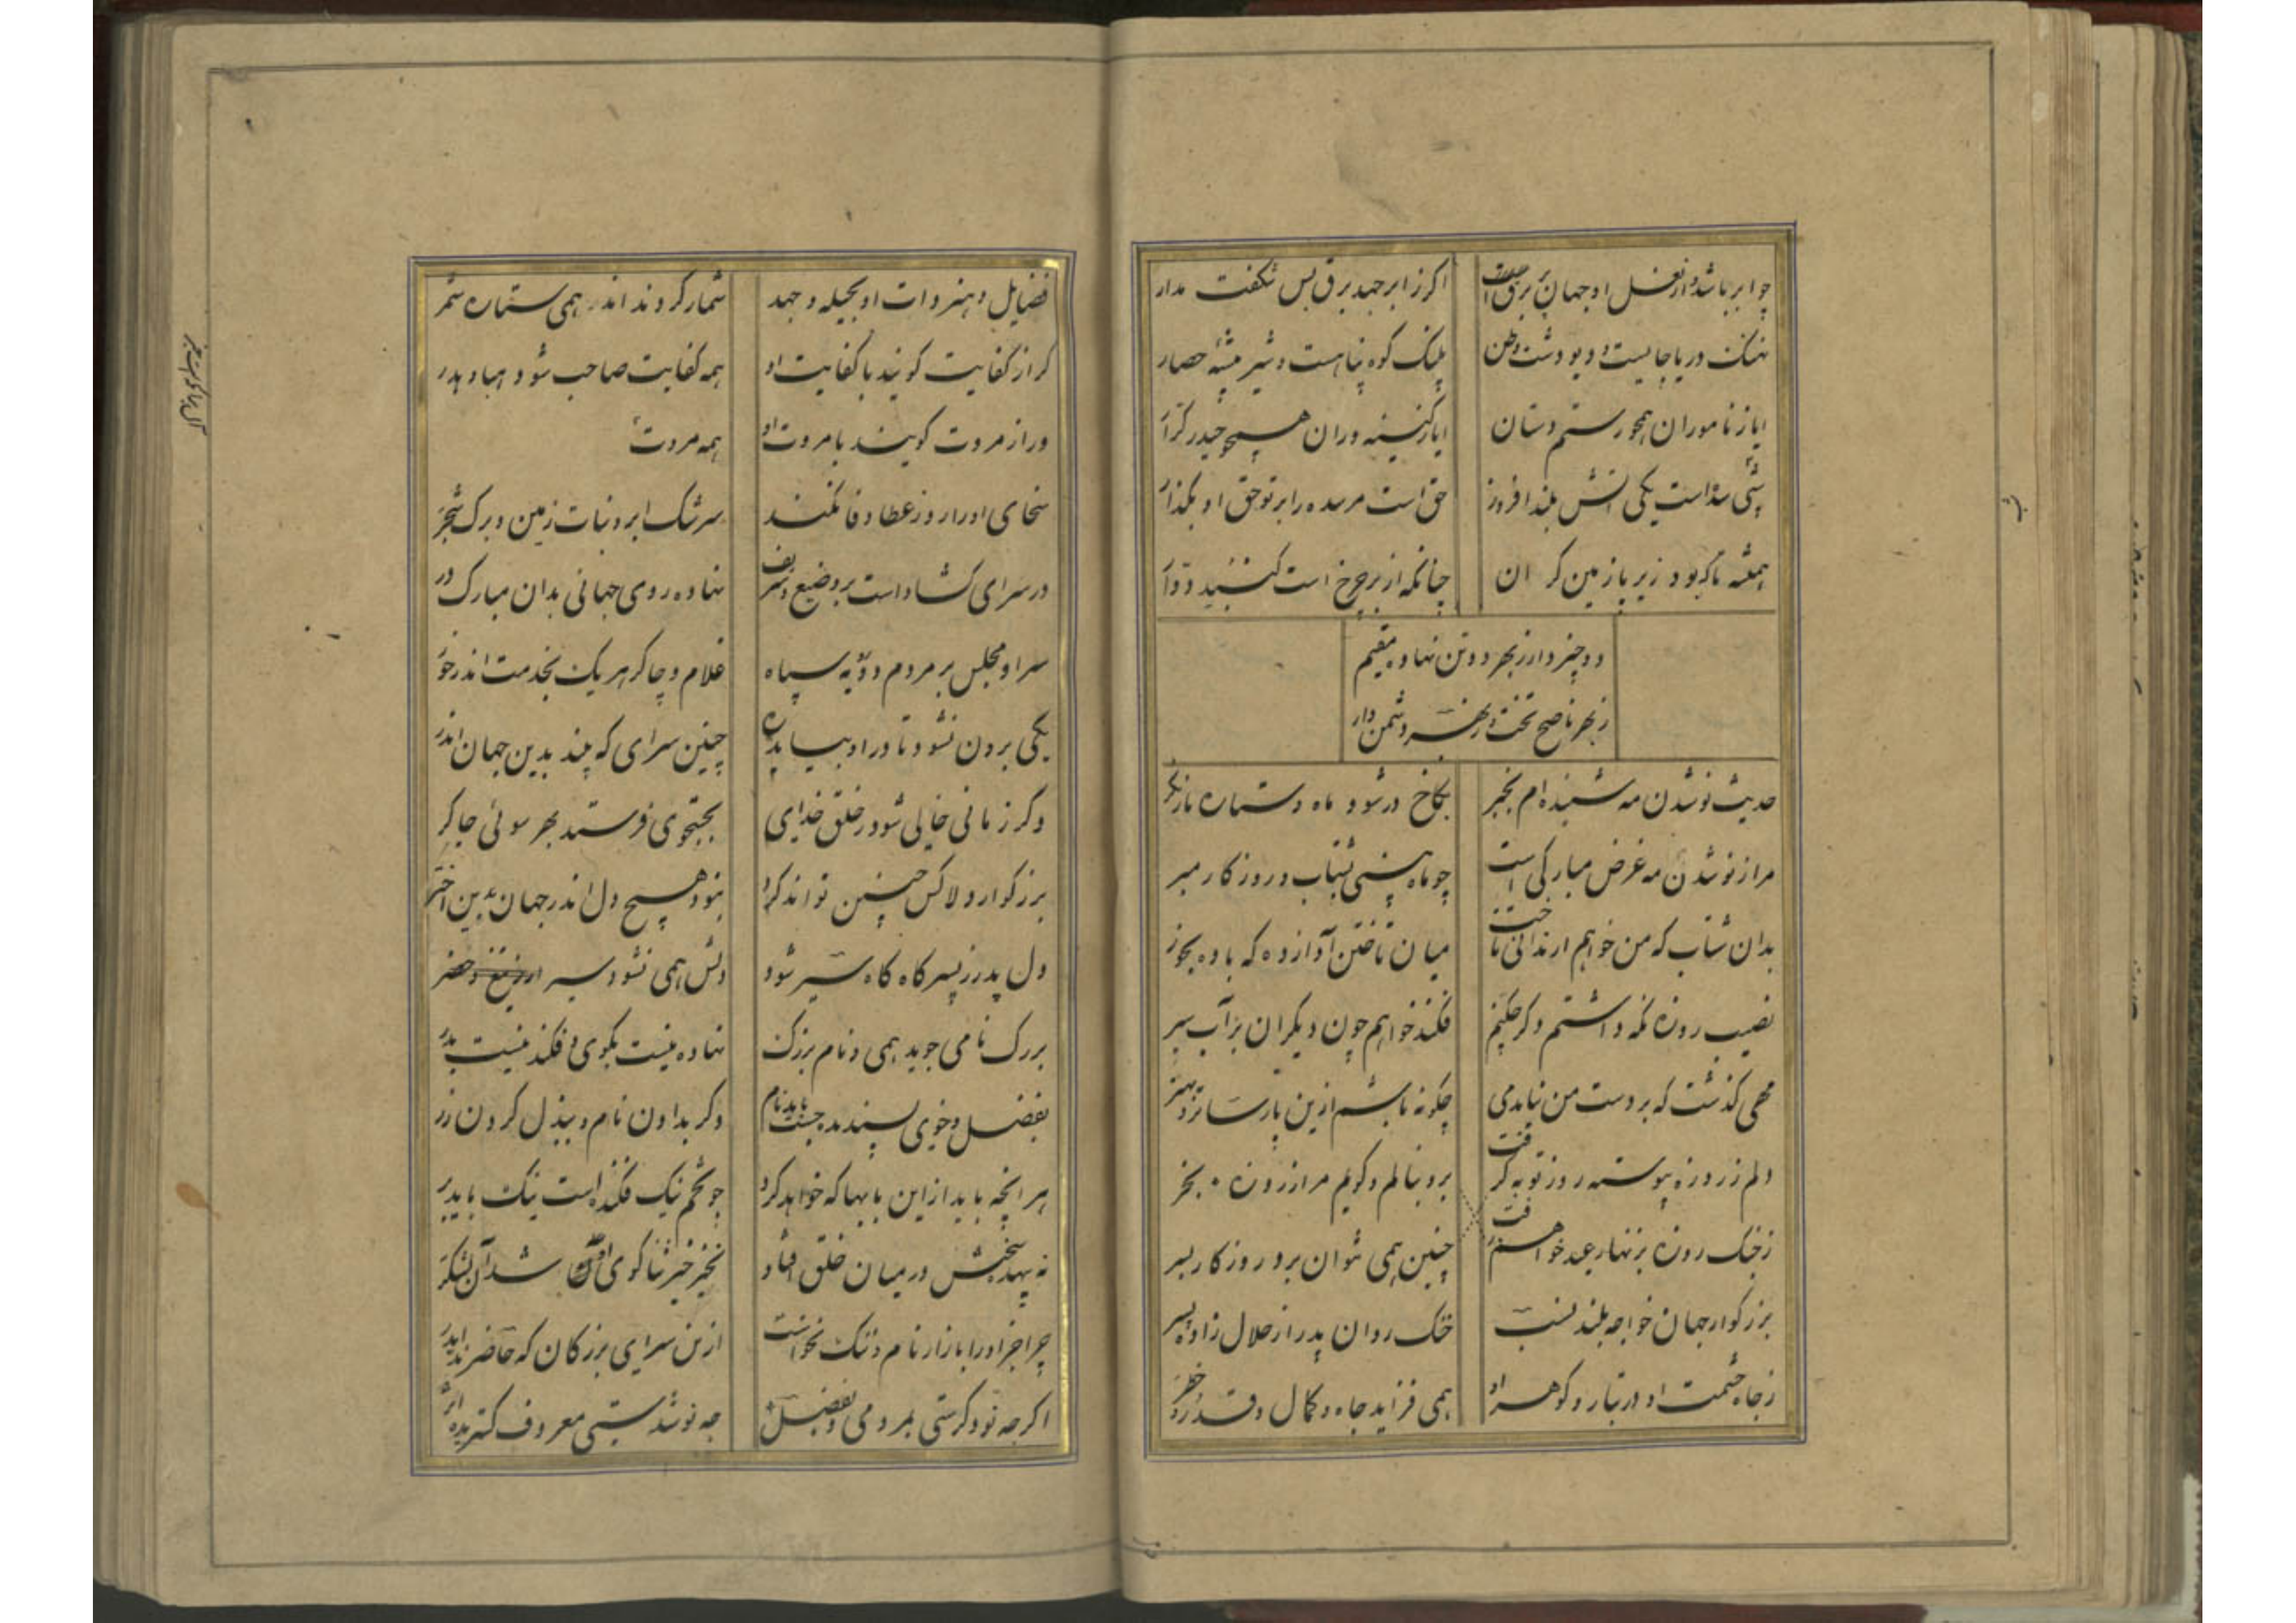 چو ابر باشد و از نعل او جهان پر برق است
اکر ز ابر جهد برق بس شکفت مدار
نهنک دریا جایست و دیو دشت وطن
پلنک کوه پناهست و شیر بیشه حصار
ایا ز ناموران همچو رستم دستان
ایا ز کینه وران همچو حیدر کرار
حق است مر سده را بر تو حق او بکذار
همیشه تا که بود زیر ما زمین کران
چنانکه از بر چرخ است کنبد دوار
دو چیز دار ز بهر دو تن نهاده مقیم
ز بهر ناصح تخت و ز بهر دشمن دار
حدیث نو شدن مه شنیده ام بخبر
بکاخ در شود ماه و ستاره نکر
مرا ز نو شدن مه غرض مبارکی است
چو ماه بینی بشتاب و روزکار مبر
بدان شتاب که من خواهم ار ندانی تاخت
میان تاختن آواز ده که باده بخور
نصیب روزه نکه داشتم دکر چکنم
فکند خواهم چون دیکران بر آب سپر
مهی کذشت که بر دست من نیامد می
چکونه باشم ازین پارساتر و بهتر
دلم ز روزه پیوسته روز توبه کرفت
برو بنالم و کویم مرا ز روزه بخر
ز جنک روزه بزنهار عید خواهم رفت
چنین همی نتوان برد روزکار بسر
بزرکوار جهان خواجه بلند نسب
خنک روان پدر از حلال زاده پسر
ز جاه حشمت او در تبار و کوهر او
همی فزاید جاه و کمال و قدر و خطر
فضایل و هنر و ات او بحیله و جهد
شمار کردند اندر همی ستاره شمر
کر از کفایت کویند با کفایت او
همه کفایت صاحب شود هبا و هدر
ور از مروت کویند با مروت او
همه مروت
سخای او را روز عطا وفا نکند
سرشک ابر و نبات زمین و برک شجر
در سرای کشاداست بر وضیع و شریف
نهاده روی جهانی بدان مبارک در
سرا و مجلس بر مردم دو رویه سپاه
غلام و چاکر هر یک بخدمت اندر خور
یکی برون نشود تا در او بیاید ده
چنین سرای که بیند بدین جهان اندر
وکر زمانی خالی شود ز خلق خدای
بجتجوی فرستد بهر سوئی چاکر
بزرکوارا ولا کس چنین تواند کرد
بنود هیچ دل اندر جهان بدین اختر
دل پدر ز پسر کاه کاه سیر شود
دلش همی نشود سیر
بزرک نامی جوید همی و نام بزرک
نهاده نیست بکوی و فکنده نیست بدر
بفضل و خوی پسندیده جست باید نام
وکر بدادن نام و ببذل کردن زر
هر انچه باید از این بابها که خواهد کرد
چو تخم نیک فکنده است نیک باید بر
نه بیهده سخنش در میان خلق افتاد
بخیر خیر ثنا کوی او شد آن لشکر
چرا جز او را بازار نام و ننک نخواست
ازین سرای بزرکان که حاضرند ایدر
اکر چه نو دکرستی بمردمی و بفضل